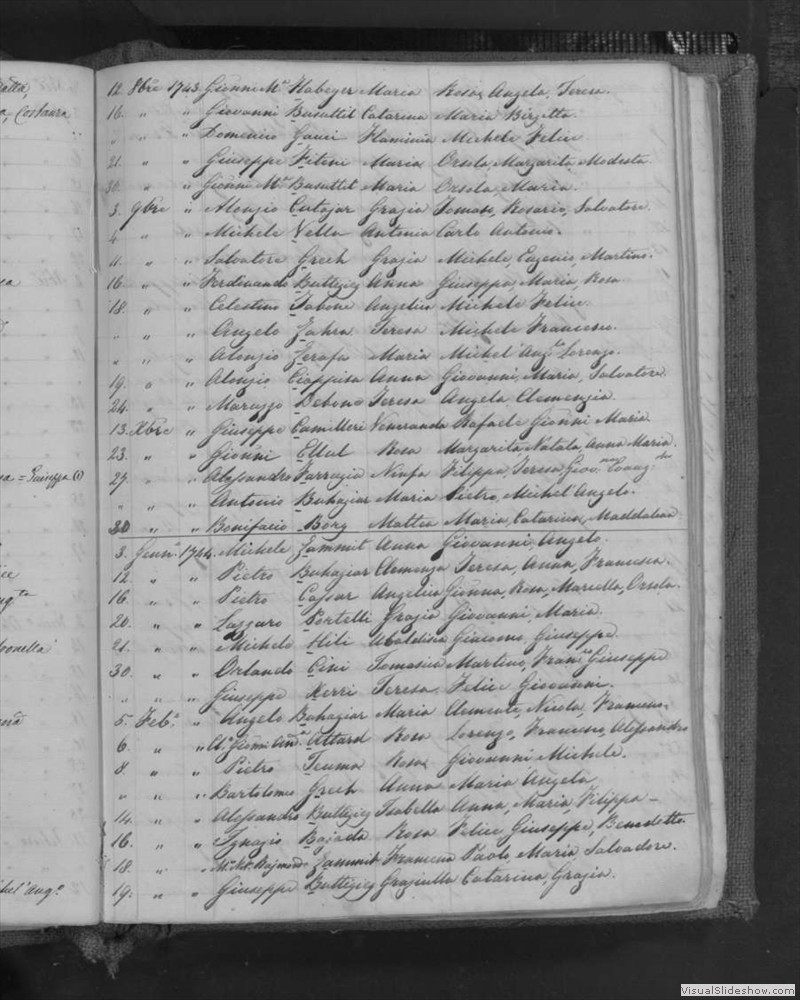 12. 8bre 1743 Gionni Ma Habeyer Maria Rosa, Angela, Teresa.
16. " " Giovanni Busuttil Catarina Maria Birgitta.
" " " Domenico Gauci Flaminia Michele Felice.
21. " " Giuseppe Fiteni Maria Orsola, Margarita, Modesta.
30. " " Gionni Ma Busuttil Maria Orsola, Maria.
3. 9bre " Aloysio Cutajar Grazia Tomaso, Rosario, Salvatore.
4. " " Michele Vella Antonia Carlo Antonio.
11. " " Salvatore Grech Grazia Michele, Eugenio, Martino.
16. " " Ferdinando Buttigieg Anna Giuseppa, Maria, Rosa.
18. " " Celestino Tabone Angelica Michele Felice.
" " " Angelo Zahra Teresa Michele Francesco.
" " " Aloysio Zerafa Maria Michel' Ango Lorenzo.
19. " " Aloysio Ciappisa Anna Giovanni, Maria, Salvatore.
24. " " Maruzzo Debono Teresa Angela Clemenzia.
13. Xbre " Giuseppe Camilleri Veneranda Rafaele Gionni Maria
23. " " Gionni Ellul Rosa Margarita Natala, Anna Maria.
27. " " Alessandro Farrugia Ninfa Filippa, Teresa
" " " Antonio Buhagiar Maria Pietro, Michel' Angelo.
30 " " Bonifacio Borg Mattia Maria, Catarina, Maddalena
3. Genn. 1744. Michele Zammit Anna Giovanni, Angelo.
12. " " Pietro Buhagiar Clemenza Teresa, Anna, Francesca.
16. " " Pietro Cassar Angelica Gionna, Rosa, Mariella, Orsola.
20. " " Lazzaro Portelli Grazia Giovanni, Maria.
21. " " Michele Hili Ubaldisca Giacomo, Giuseppe.
30. " " Orlando Cini Tomasica Martino, Franco Giuseppe
" " " Giuseppe Xerri Teresa Felice Giovanni.
5. Feb.o " Angelo Buhagiar Maria Clemente, Nicola, Francesco.
6. " " Gionni And.a Attard Rosa Lorenzo, Francesco, Alessandro
8. " " Pietro Teuma Rosa Giovanni Michele.
" " " Bartolomeo Grech Anna Maria Angela
14. " " Alessandro Buttigieg Isabella Anna, Maria, Filippa -
16. " " Ignazio Bajada Rosa Felice Giuseppe, Benedetto.
18. " " Rajmondo Zammit Francesca Paolo, Maria Salvadore.
19. " " Giuseppe Buttigieg Graziulla Catarina, Grazia.
VisualSlideshow.com